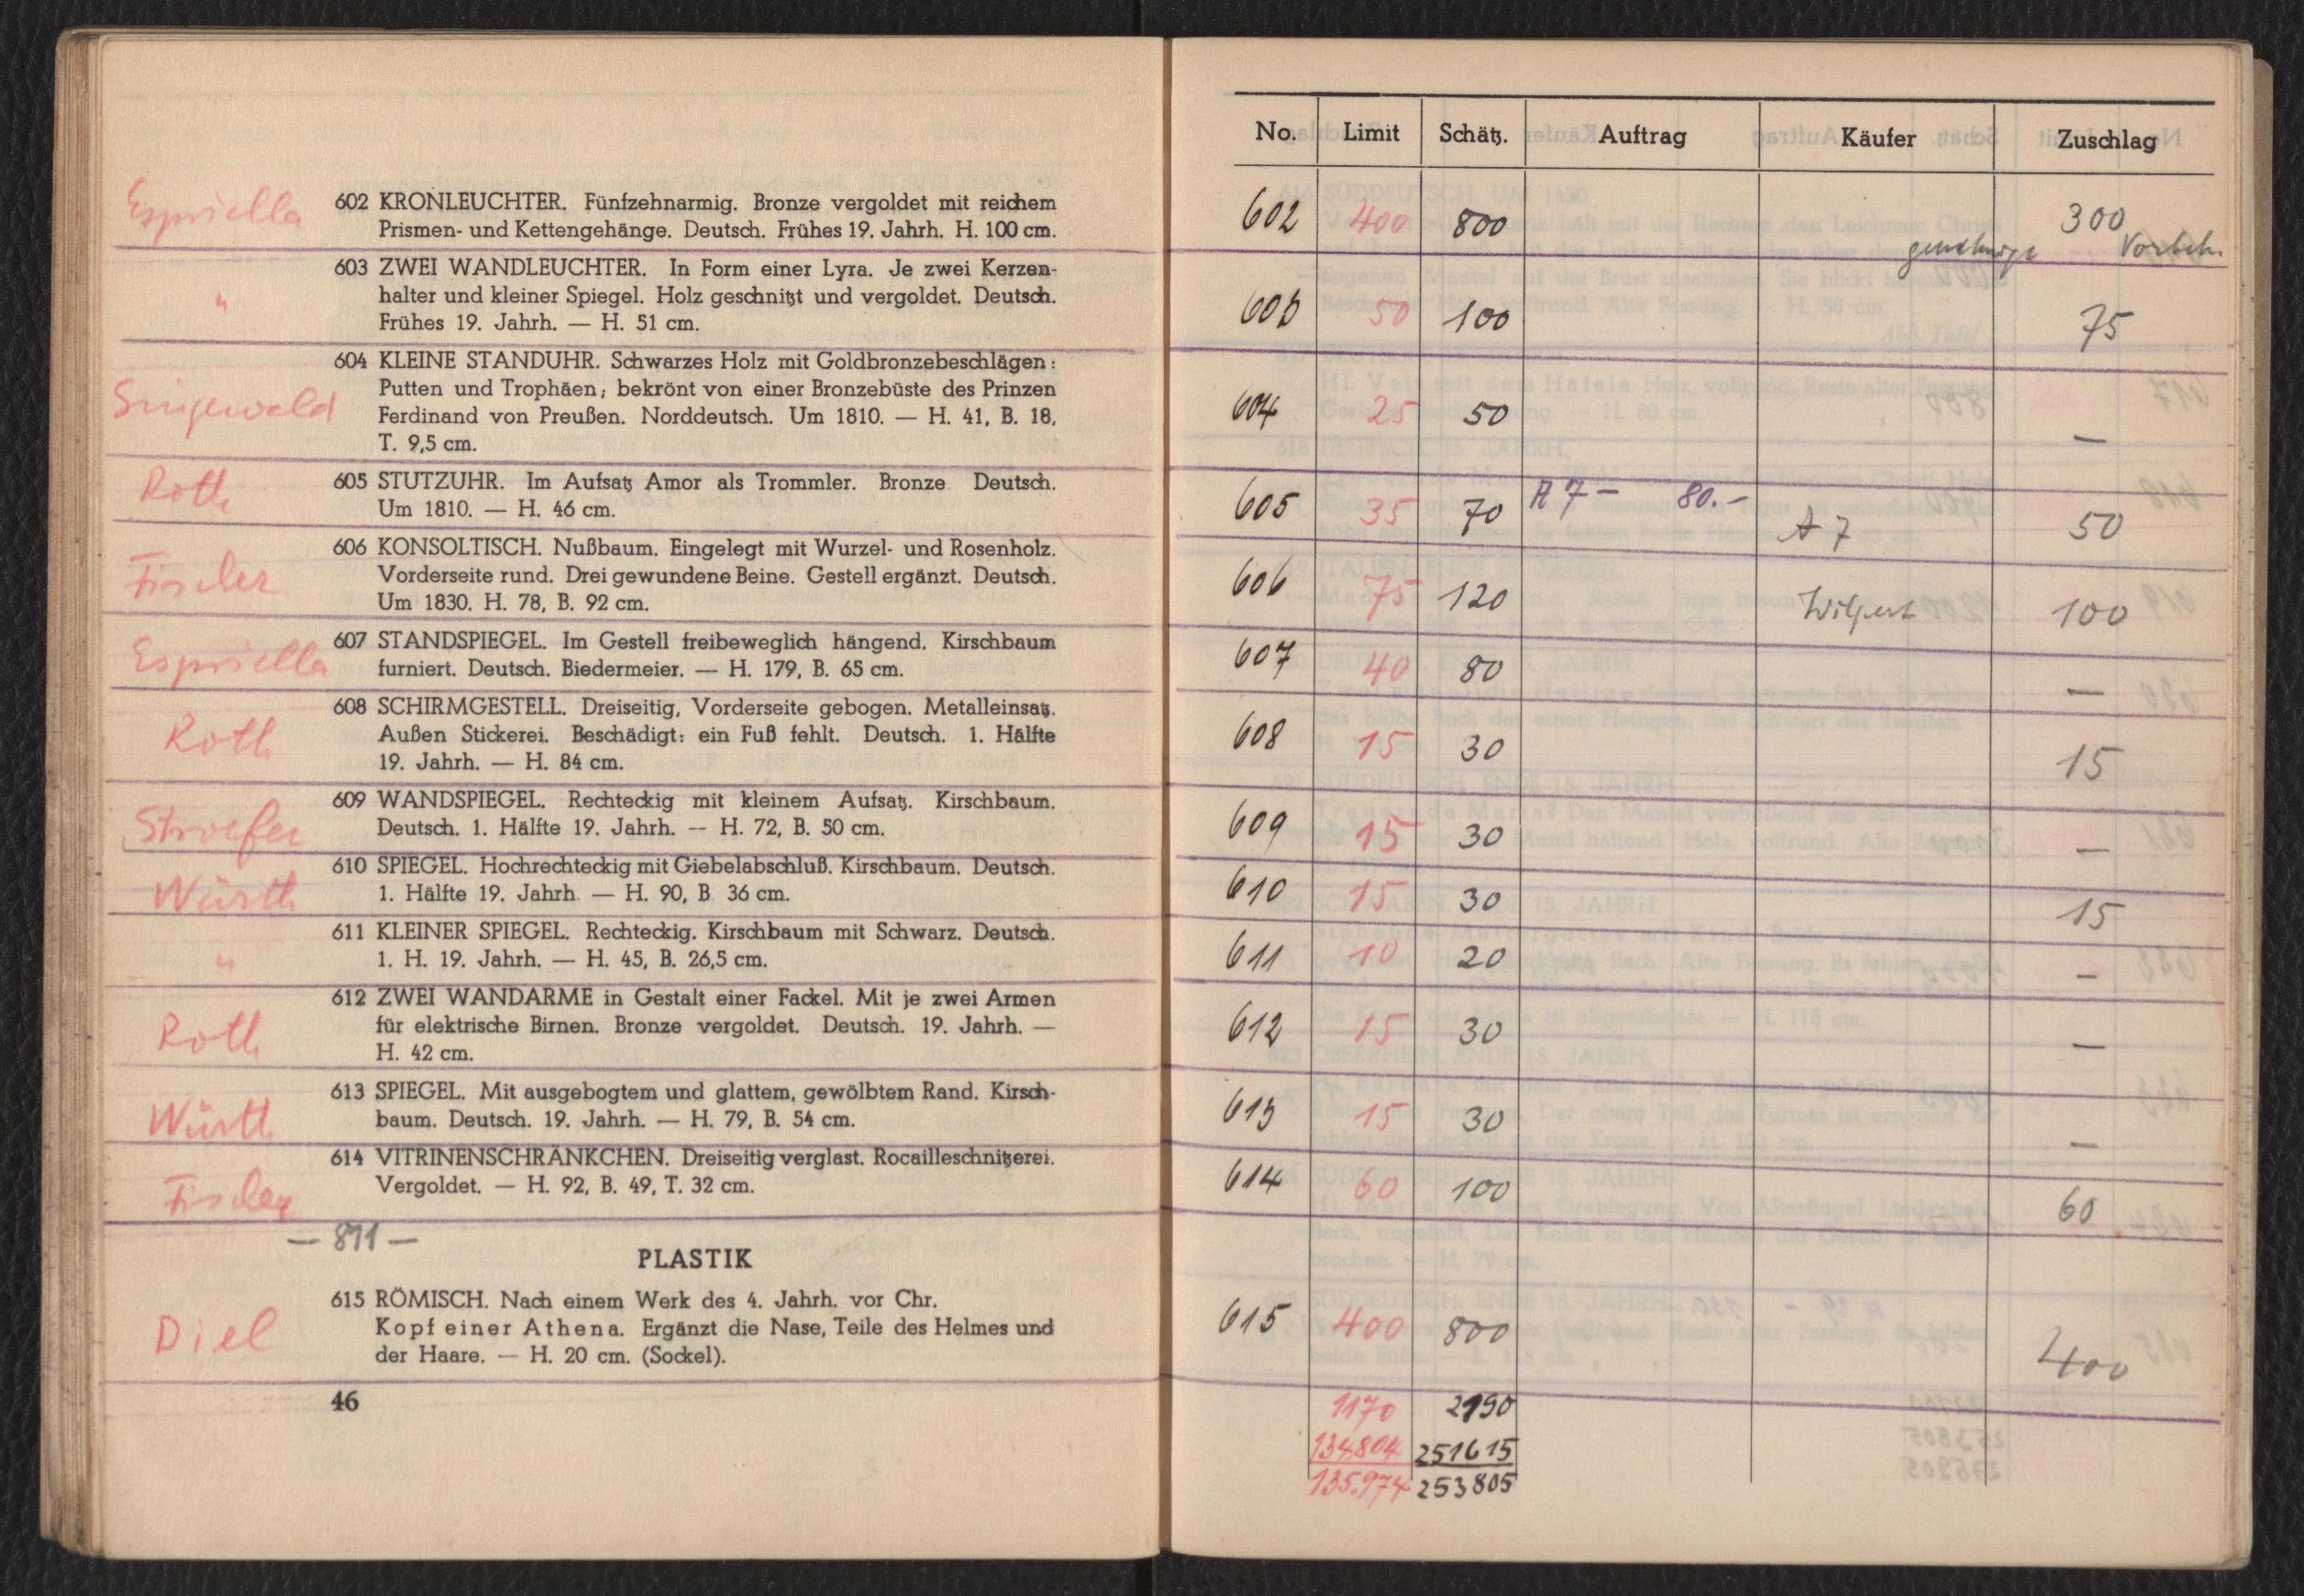 Espriella
602 KRONLEUCHTER. Fünfzehnarmig. Bronze vergoldet mit reichem
Prismen- und Kettengehänge. Deutsch. Frühes 19. Jahrh. H. 100 cm.
"
603 ZWEI WANDLEUCHTER. In Form einer Lyra. Je zwei Kerzen-
halter und kleiner Spiegel. Holz geschnitzt und vergoldet. Deutsch.
Frühes 19. Jahrh. — H. 51 cm.
Singewald
604 KLEINE STANDUHR. Schwarzes Holz mit Goldbronzebeschlägen:
Putten und Trophäen; bekrönt von einer Bronzebüste des Prinzen
Ferdinand von Preußen. Norddeutsch. Um 1810. — H. 41, B. 18,
T. 9,5 cm.
Roth
605 STUTZUHR. Im Aufsatz Amor als Trommler. Bronze. Deutsch.
Um 1810. — H. 46 cm.
Fischer
606 KONSOLTISCH. Nußbaum. Eingelegt mit Wurzel- und Rosenholz.
Vorderseite rund. Drei gewundene Beine. Gestell ergänzt. Deutsch.
Um 1830. H. 78, B. 92 cm.
Espriella
607 STANDSPIEGEL. Im Gestell freibeweglich hängend. Kirschbaum
furniert. Deutsch. Biedermeier. — H. 179, B. 65 cm.
Roth
608 SCHIRMGESTELL. Dreiseitig, Vorderseite gebogen. Metalleinsatz.
Außen Stickerei. Beschädigt: ein Fuß fehlt. Deutsch. 1. Hälfte
19. Jahrh. — H. 84 cm.
Stroefer
609 WANDSPIEGEL. Rechteckig mit kleinem Aufsatz. Kirschbaum.
Deutsch. 1. Hälfte 19. Jahrh. -- H. 72, B. 50 cm.
Würth
610 SPIEGEL. Hochrechteckig mit Giebelabschluß. Kirschbaum. Deutsch.
1. Hälfte 19. Jahrh. — H. 90, B. 36 cm.
"
611 KLEINER SPIEGEL. Rechteckig. Kirschbaum mit Schwarz. Deutsch.
1. H. 19. Jahrh. — H. 45, B. 26,5 cm.
Roth
612 ZWEI WANDARME in Gestalt einer Fackel. Mit je zwei Armen
für elektrische Birnen. Bronze vergoldet. Deutsch. 19. Jahrh. —
H. 42 cm.
Würth
613 SPIEGEL. Mit ausgebogtem und glattem, gewölbtem Rand. Kirsch-
baum. Deutsch. 19. Jahrh. — H. 79, B. 54 cm.
Fischer
614 VITRINENSCHRÄNKCHEN. Dreiseitig verglast. Rocailleschnitzerei.
Vergoldet. — H. 92, B. 49, T. 32 cm.
— 811 —
PLASTIK
Diel
615 RÖMISCH. Nach einem Werk des 4. Jahrh. vor Chr.
Kopf einer Athena. Ergänzt die Nase, Teile des Helmes und
der Haare. — H. 20 cm. (Sockel).
46
No. Limit Schätz. Auftrag Käufer Zuschlag
602 400 800 300
Vorbeh.
603 50 100 75
604 25 50 —
605 35 70 A 7 – 80.– A 7 50
606 75 120 Wilpert 100
607 40 80 —
608 15 30 15
609 15 30 —
610 15 30 15
611 10 20 —
612 15 30 —
613 15 30 —
614 60 100 60
615 400 800 400
1170 2190
134.804 251615
135.974 253805